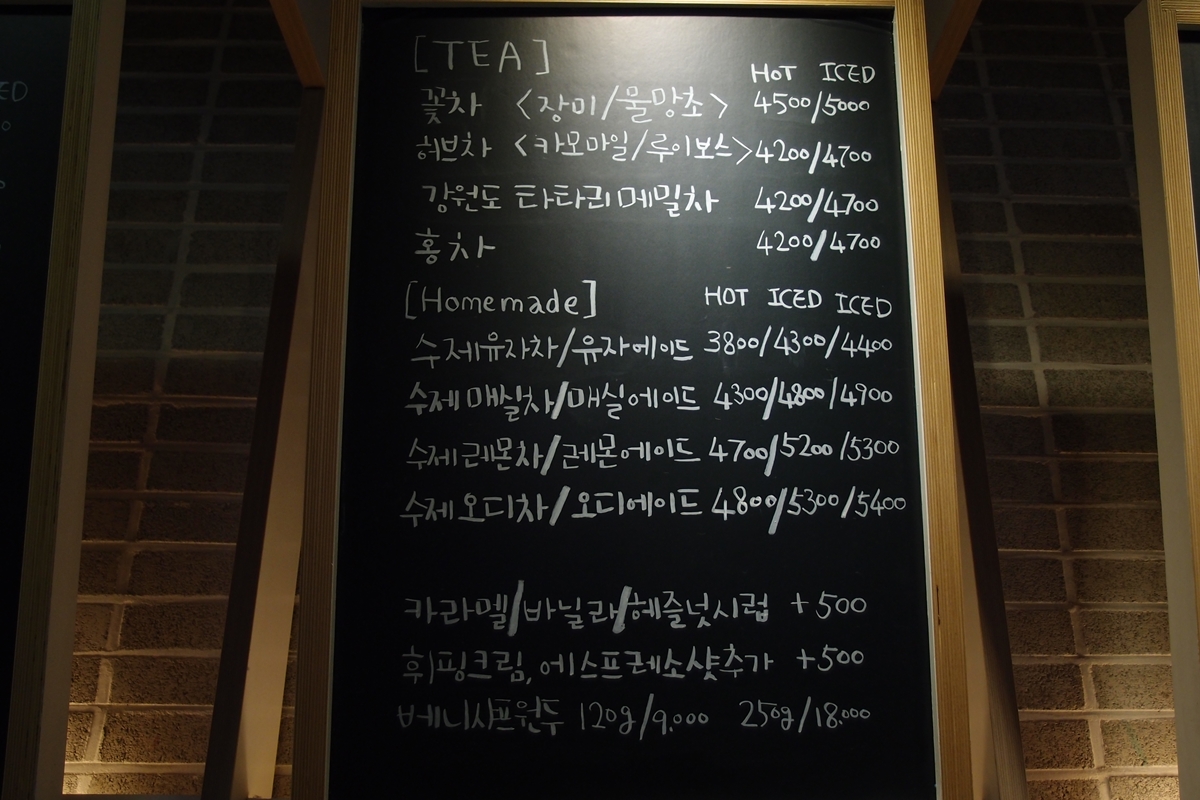 [TEA]
HOT ICED
꽃차 <장미/물망초> 4500/5000
허브차 <카모마일/루이보스> 4200/4700
강원도 타타리메밀차 4200/4700
홍차 4200/4700
[Homemade] HOT ICED ICED
수제유자차/유자에이드 3800/4300/4400
수제매실차/매실에이드 4300/4800/4900
수제레몬차/레몬에이드 4700/5200/5300
수제오디차/오디에이드 4800/5300/5400
카라멜/바닐라/헤즐넛시럽 +500
휘핑크림, 에스프레소샷추가 +500
베니샤프원두 120g/9.000 250g/18.000